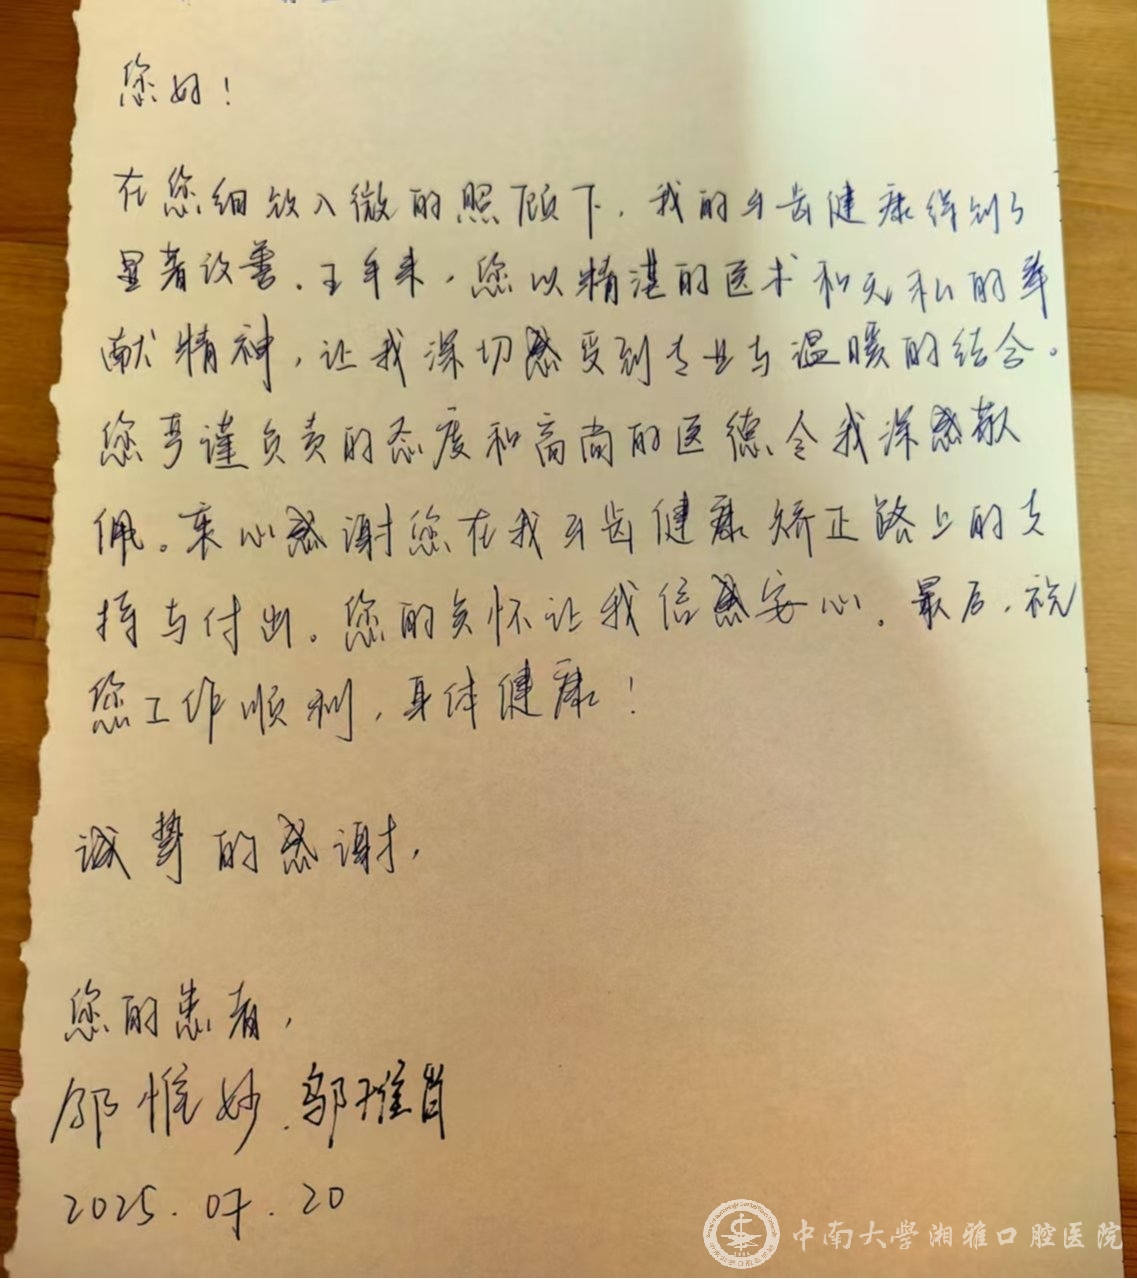 您好！
在您细致入微的照顾下，我的牙齿健康得到了
显著改善。五年来，您以精湛的医术和无私的奉
献精神，让我深切感受到专业与温暖的结合。
您严谨负责的态度和高尚的医德令我深感敬
佩。衷心感谢您在我牙齿健康矫正路上的支
持与付出。您的关怀让我倍感安心。最后，祝
您工作顺利，身体健康！
诚挚的感谢，
您的患者，
邬惟妙.邬惟肖
2025.07.20
中南大学湘雅口腔医院